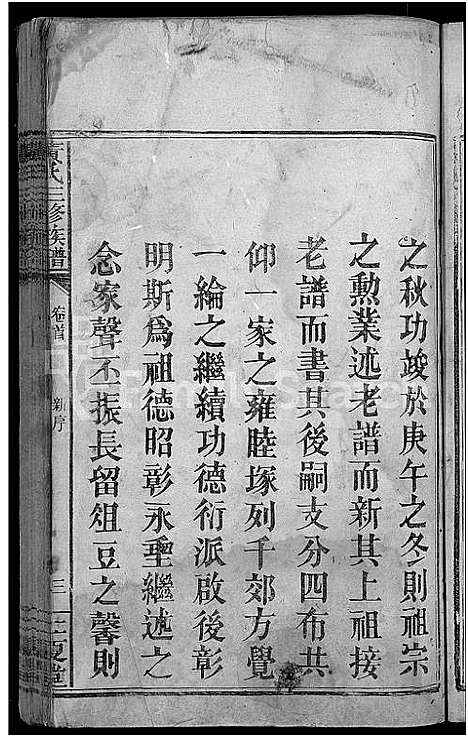 之秋功竣於庚午之冬則祖宗
之勲業述老譜而新其上祖接
老譜而書其後嗣支分四布共
仰一家之雍睦塚列千郊方覺
一綸之繼續功德衍派啟後彰
明斯爲祖德昭彰永垂繼述之
念家聲丕振長留俎豆之馨則
黃氏三修族譜
卷首
新序
三
三夏堂